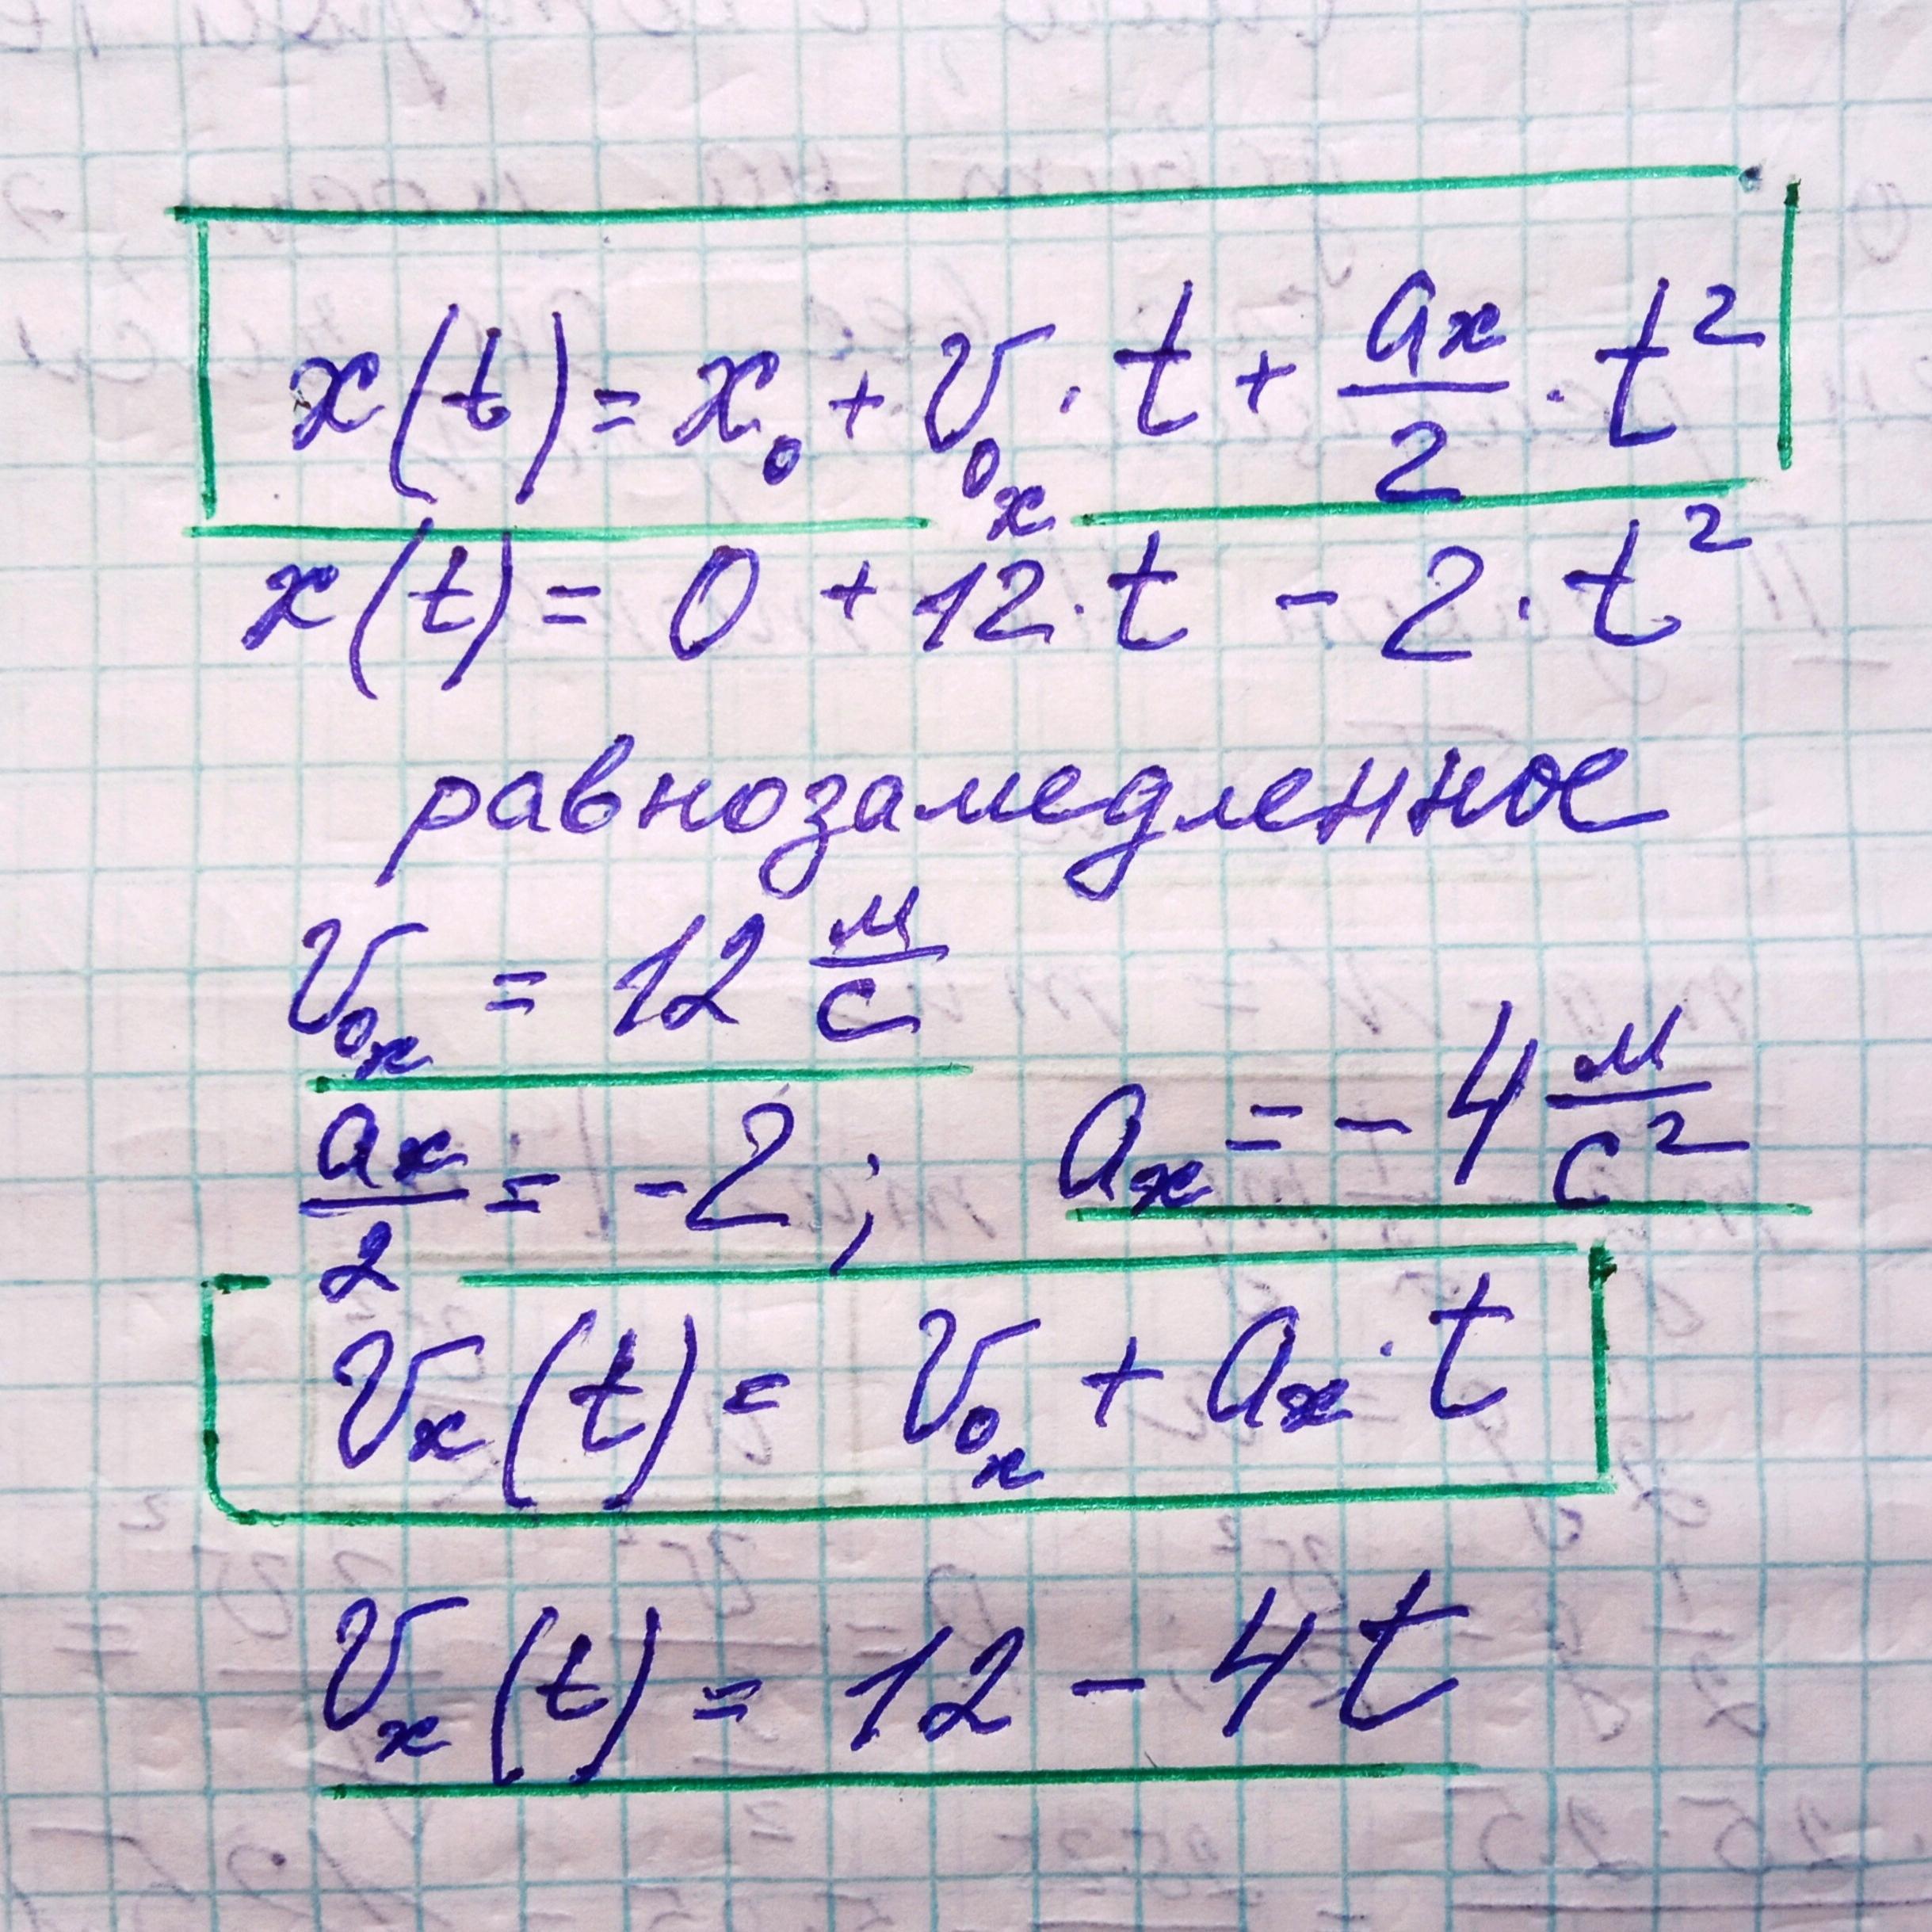 x(t) = x₀ + v₀ₓ · t + aₓ/2 · t²
x(t) = 0 + 12 · t - 2 · t²
равнозамедленное
v₀ₓ = 12 м/с
aₓ/2 = -2; aₓ = -4 м/с²
vₓ(t) = v₀ₓ + aₓ · t
vₓ(t) = 12 - 4t